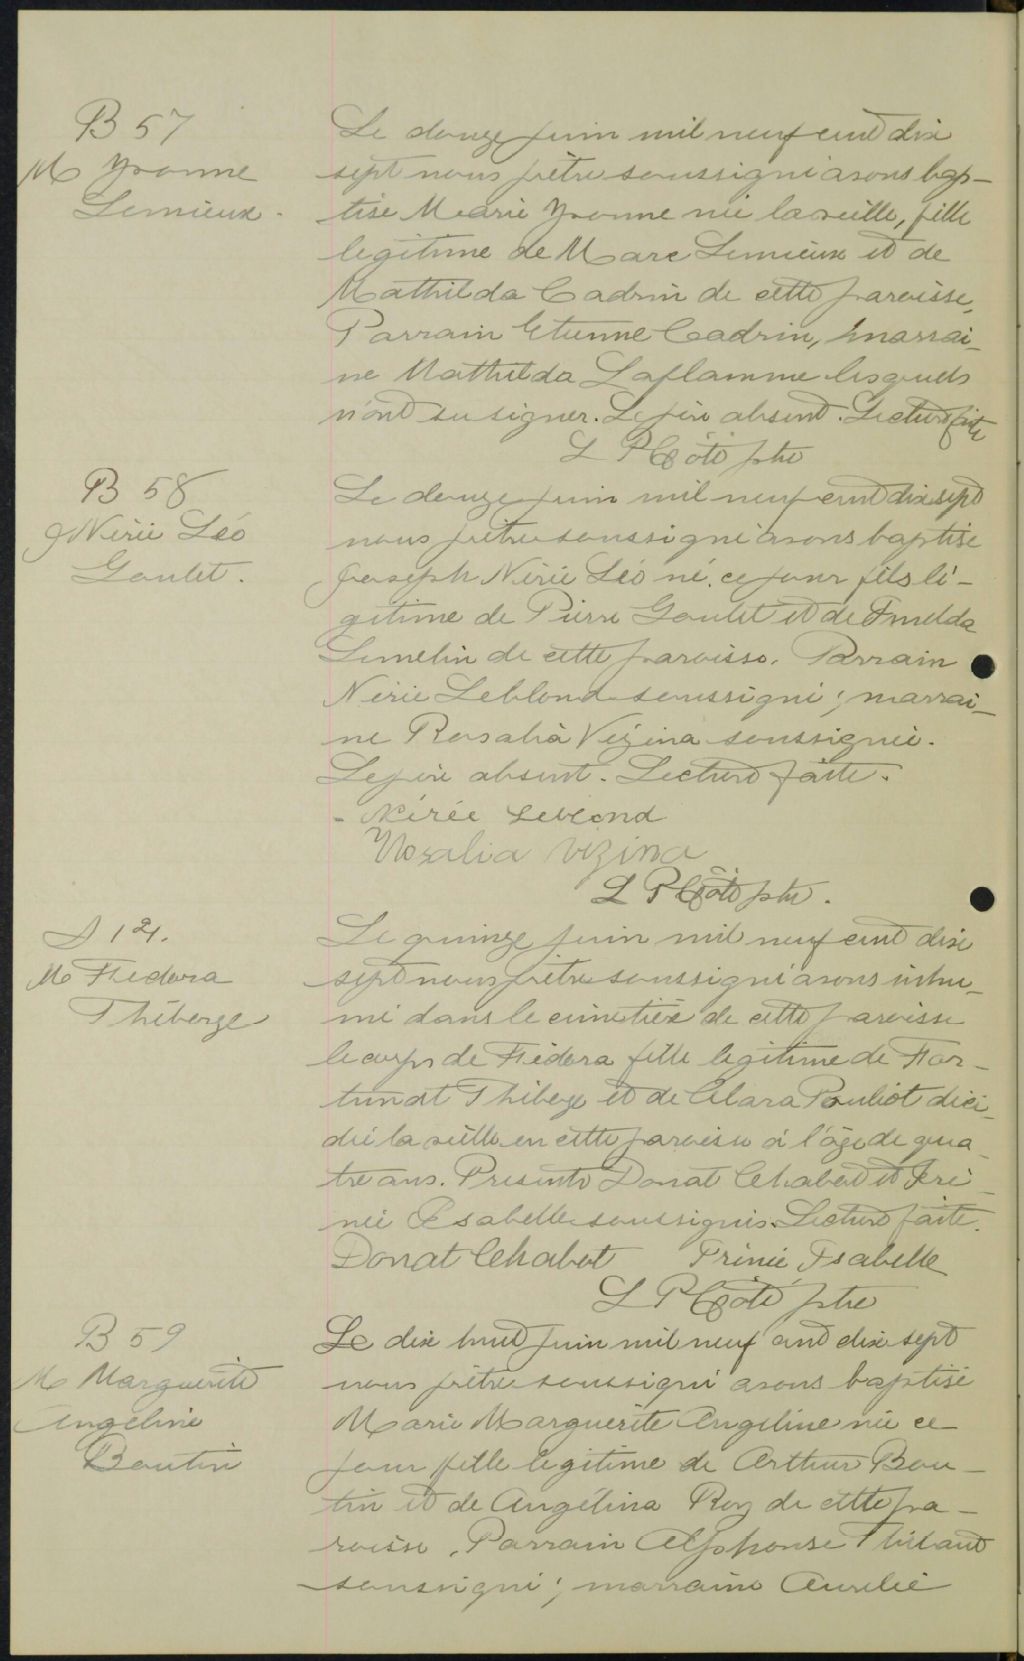 B 57
M Yvonne
Lemieux.
Le douze juin mil neuf cent dix
sept nous prêtre soussigné avons bap-
tisé Marie Yvonne née la veille, fille
légitime de Marc Lemieux et de
Mathilda Cadrin de cette paroisse,
Parrain Etienne Cadrin, marrai-
ne Mathilda Laflamme lesquels
n'ont su signer. Le père absent. Lecture faite
L P Côté ptre
B 58
J Nérée Léo
Goulet.
Le douze juin mil neuf cent dix sept
nous prêtre soussigné avons baptisé
Joseph Nérée Léo né ce jour fils lé-
gitime de Pierre Goulet et de Imelda
Lemelin de cette paroisse. Parrain
Nérée Leblond soussigné; marrai-
ne Rosalia Vézina soussignée.
Le père absent. Lecture faite.
- Nérée Leblond
Rosalia Vézina
L P Côté ptre.
S 121.
M Fiedora
Théberge
Le quinze juin mil neuf cent dix
sept nous prêtre soussigné avons inhu-
mé dans le cimetière de cette paroisse
le corps de Fiédora fille légitime de For-
tunat Théberge et de Clara Pouliot décé-
dée la veille en cette paroisse à l'âge de qua-
tre ans. Présents Donat Chabot et Iré-
née Isabelle soussignés. Lecture faite.
Donat Chabot Irénée Isabelle
L P Côté ptre
B 59
M Marguerite
Angeline
Boutin
Le dix huit juin mil neuf cent dix sept
nous prêtre soussigné avons baptisé
Marie Marguerite Angéline née ce
jour fille légitime de Arthur Bou-
tin et de Angélina Roy de cette pa-
roisse. Parrain Alphonse Thibault
soussigné; marraine Aurélie